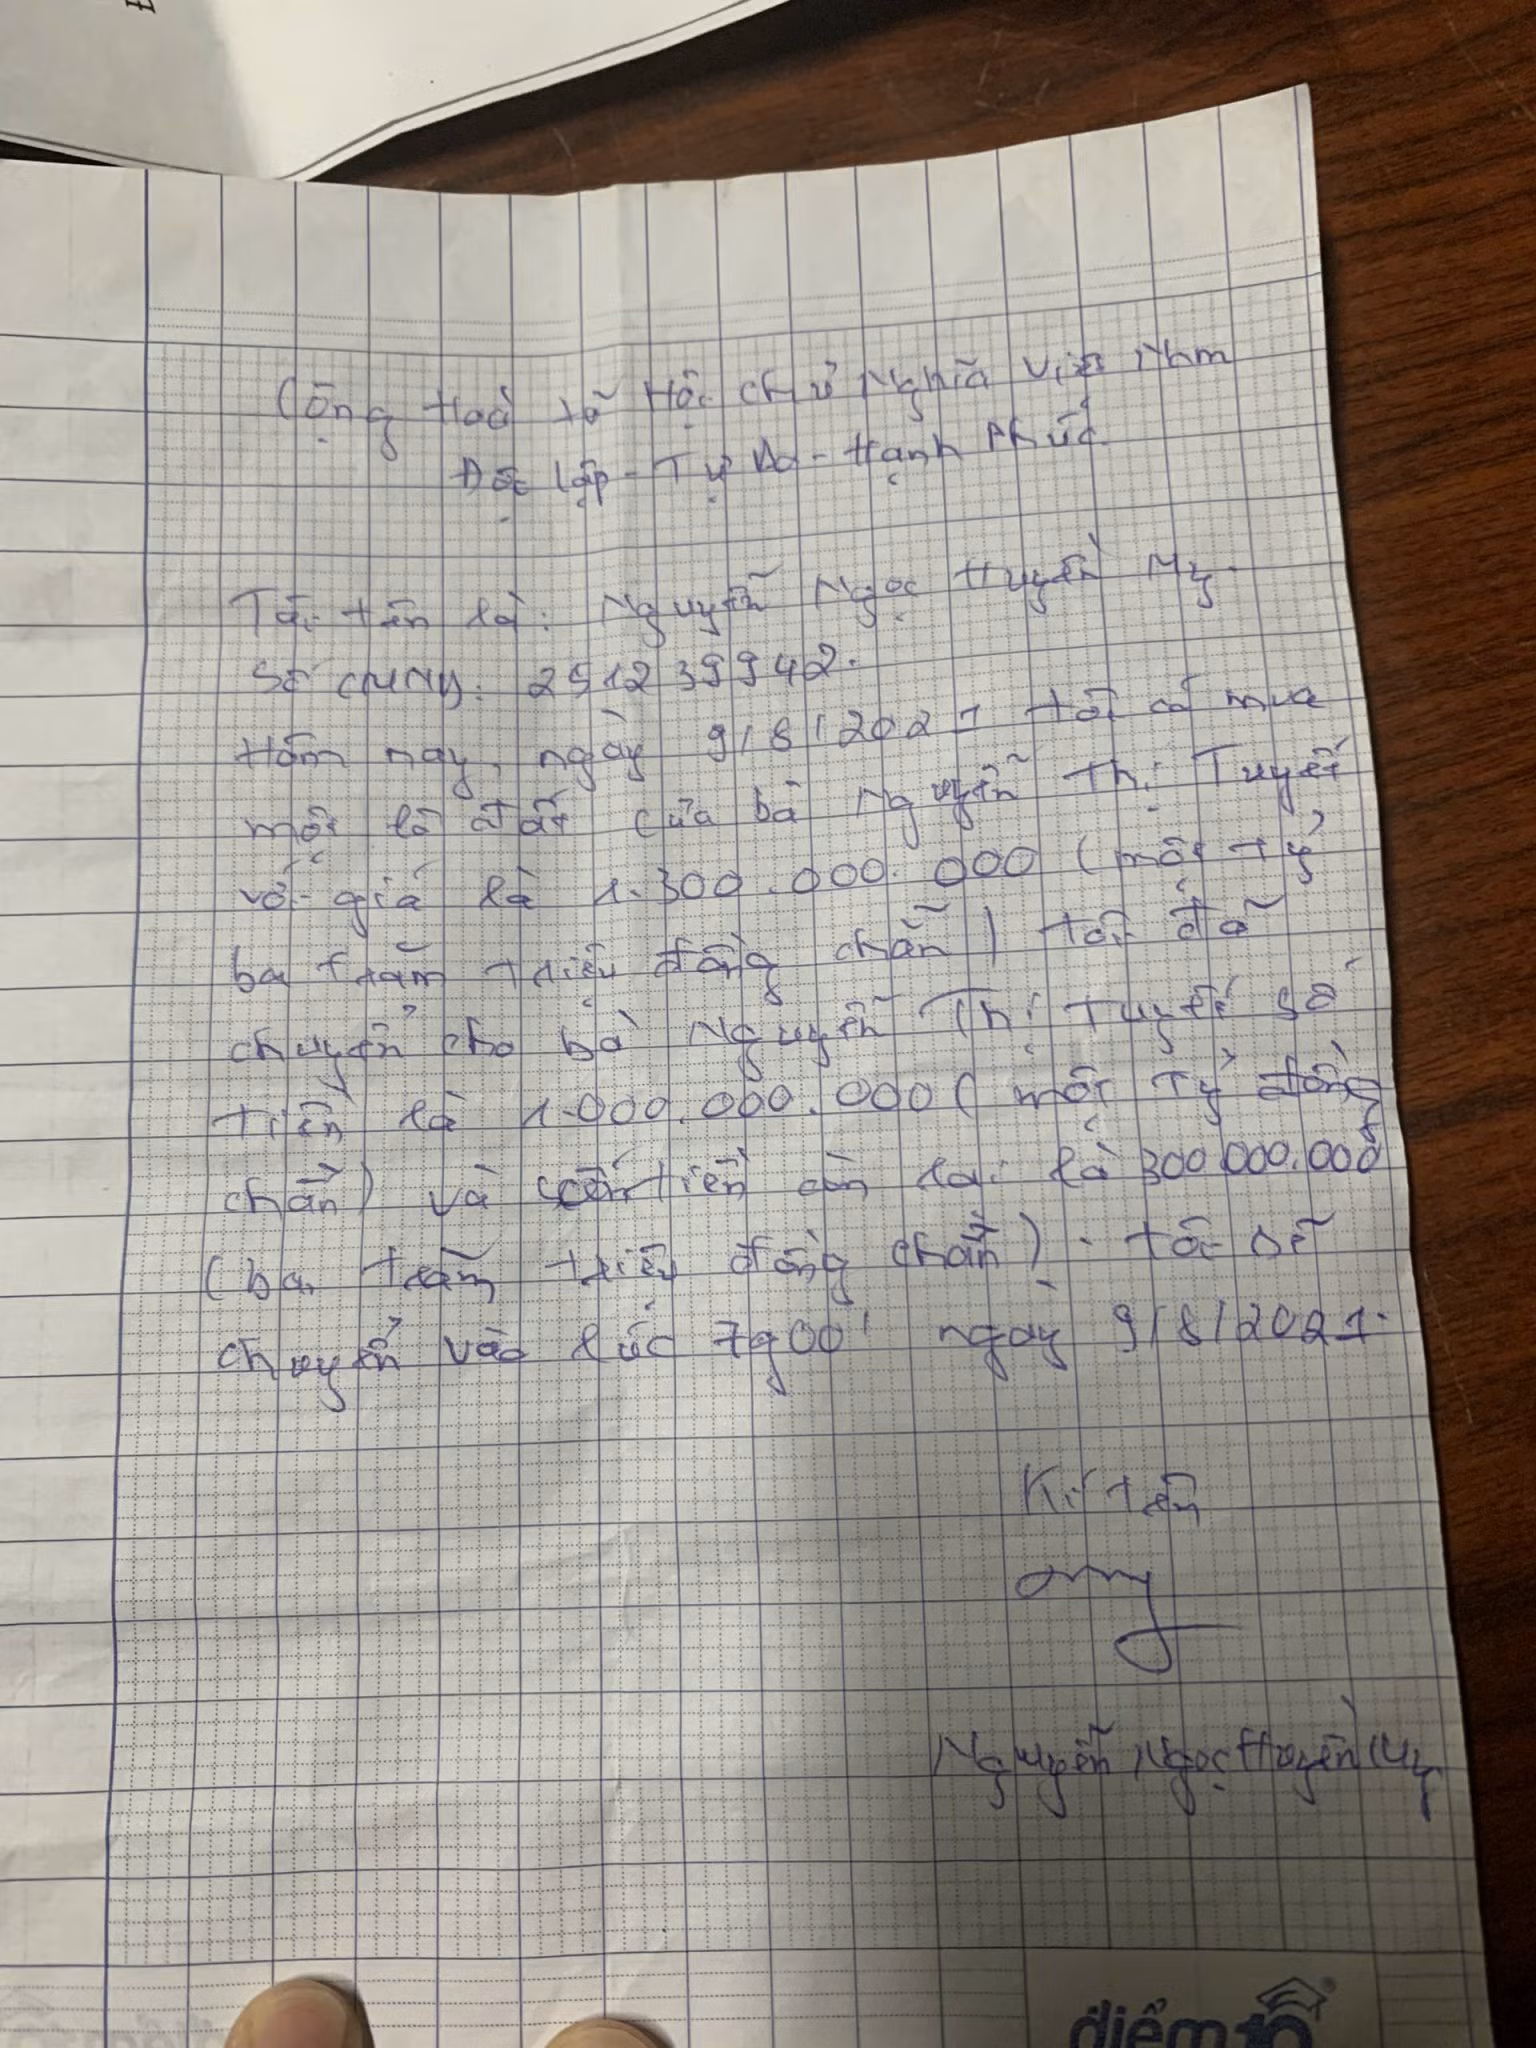 Cộng Hoà Xã Hội Chủ Nghĩa Việt Nam
Độc lập - Tự Do - Hạnh Phúc
Tôi tên là: Nguyễn Ngọc Huyền My.
Số CMND: 251239942.
Hôm nay, ngày 9/8/2021 tôi có mua
một lô đất của bà Nguyễn Thị Tuyết
với giá là 1.300.000.000 (một tỷ
ba trăm triệu đồng chẵn) tôi đã
chuyển cho bà Nguyễn Thị Tuyết số
tiền là 1.000.000.000 (một Tỷ đồng
chẵn) và số tiền còn lại là 300.000.000
(ba trăm triệu đồng chẵn). tôi sẽ
chuyển vào lúc 7g00' ngày 9/8/2021.
Kí tên
my
Nguyễn Ngọc Huyền My
điểm 10